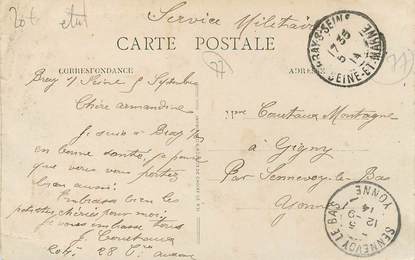 Service Militaire
CARTE POSTALE
CORRESPONDANCE
ADRESSE
Bray s/ Seine 5 Septembre
Chère armandine
Je suis à Bray s/s
en bonne santé, je pense
que vous vous portez
bien aussi.
Embrasse bien les
chéries pour moi,
Je vous embrasse tous
J Courtaux
28 Cie
Mme Courtaux Montagne
à Gigny
Par Sennevoy-le-Bas
Yonne
BRAY-S-SEINE
17 35
5 9
14
SEINE-ET-MARNE
SENNEVOY LE BAS
12
5 9
14
YONNE
77
77